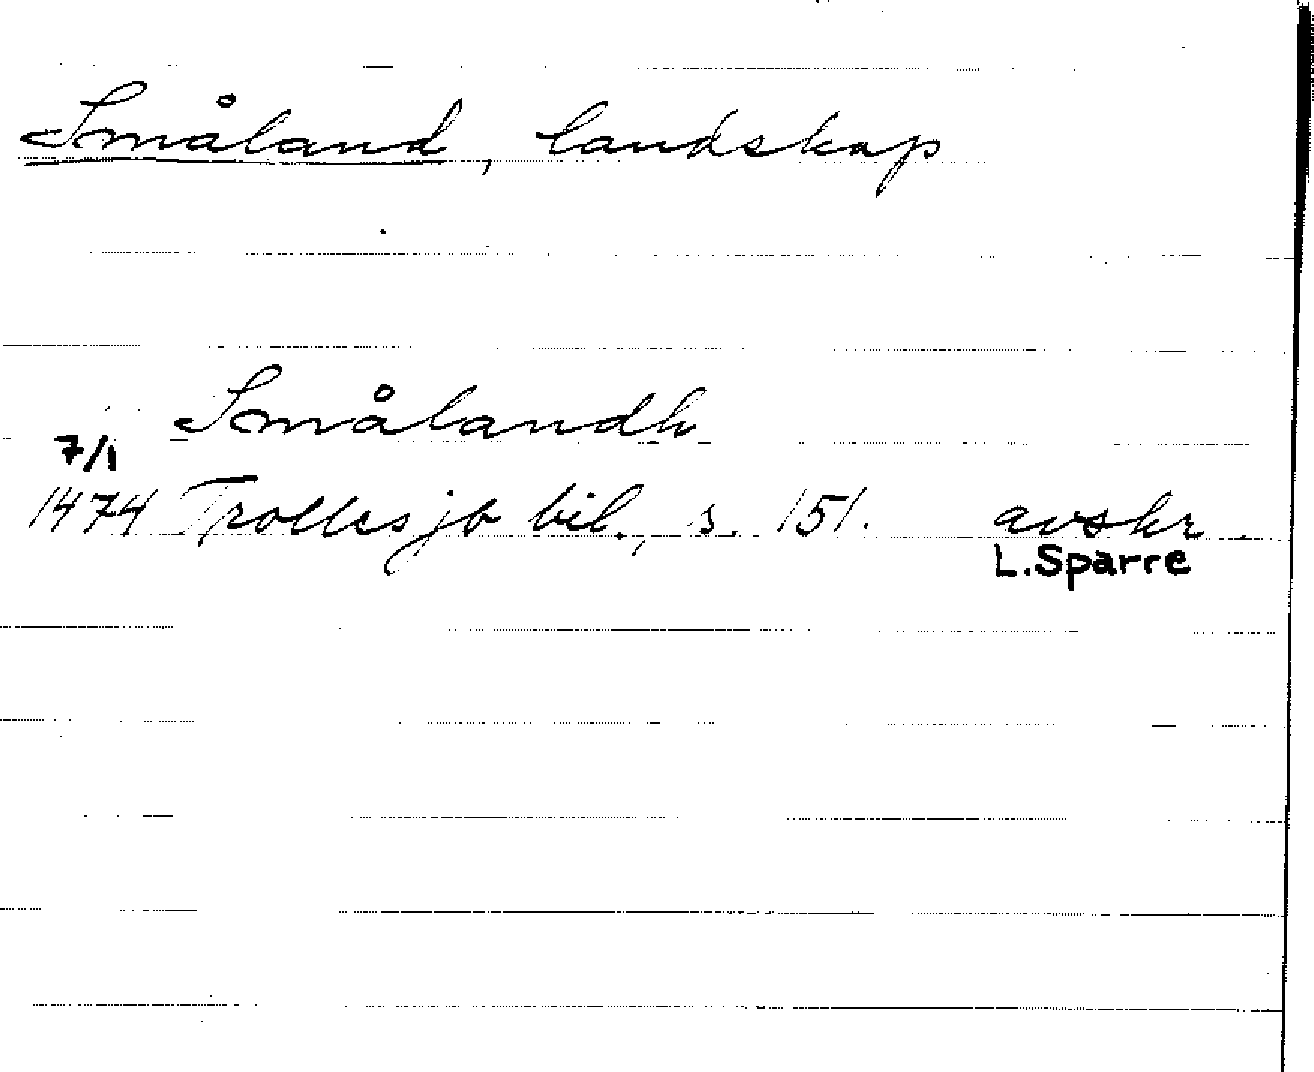 Småland, landskap
Smålandh
7/1
1474 Trolles jb bil., s. 151. avskr.
L. Sparre